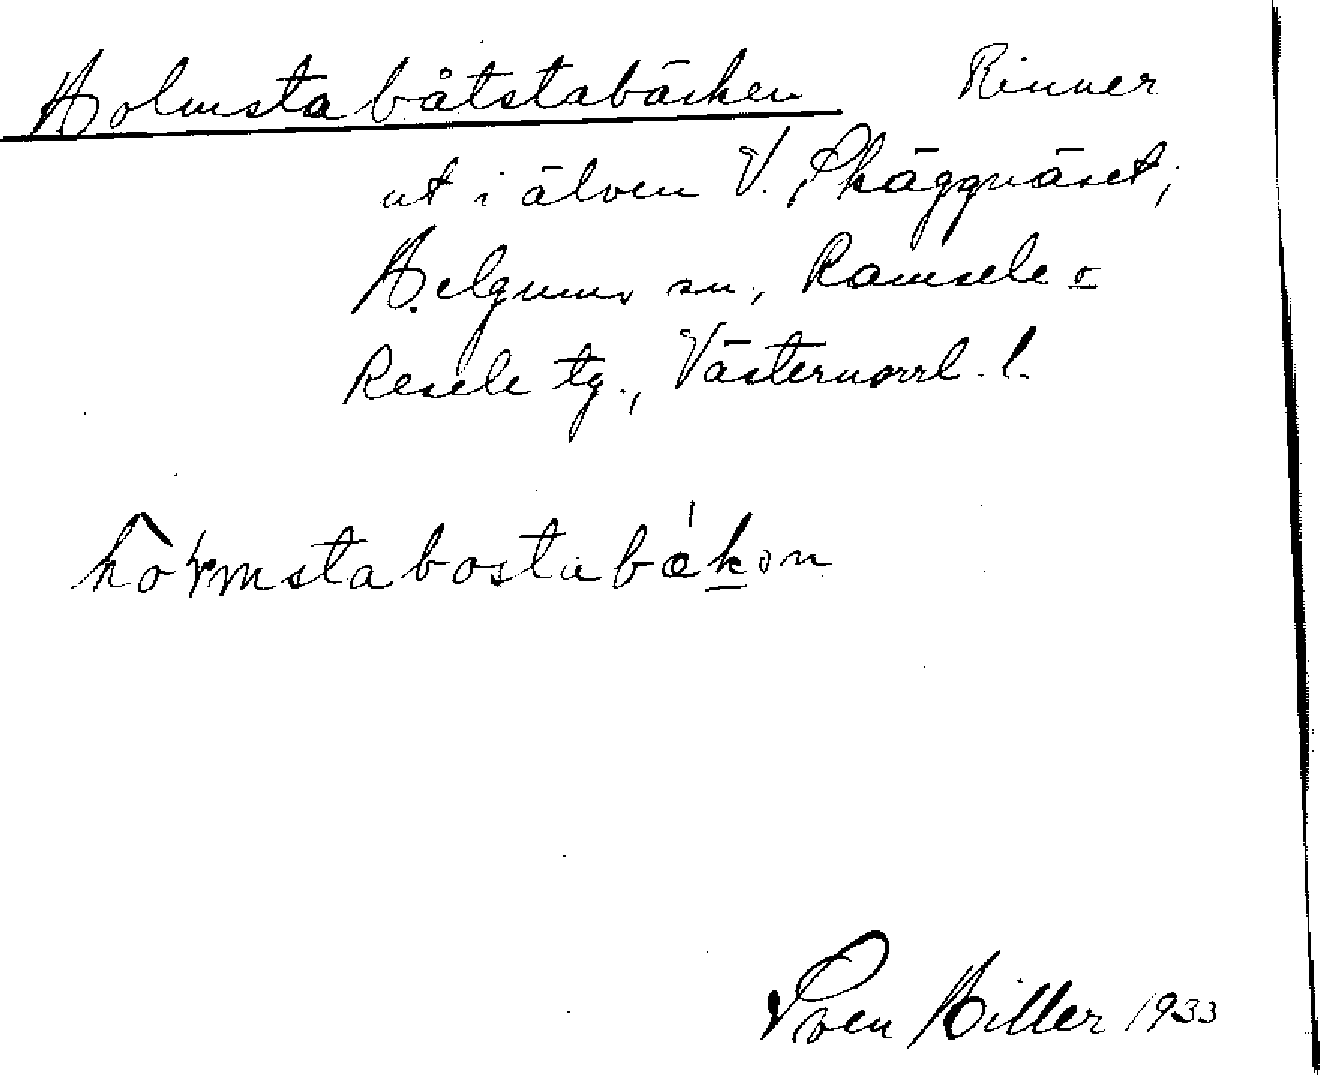 Holmstabåtstabäcken Rinner
ut i älven V. Skäggnäset,
Helgums sn, Ramsele o
Resele tg., Västernorrl. l.
hormstabostabäkən
Sven Hiller 1933